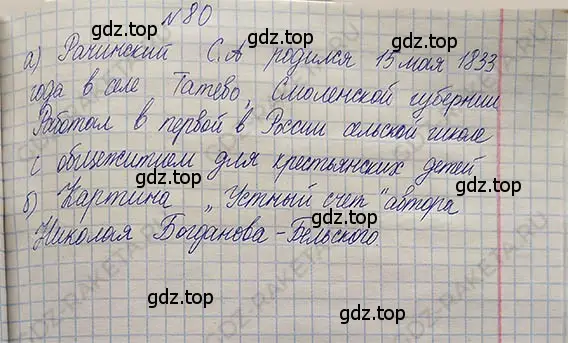 №80
а) Рачинский С.А родился 15 мая 1833
года в селе Татево, Смоленской губернии
Работал в первой в России сельской школе
с общежитием для крестьянских детей
б) Картина „Устный счет" автора
Николая Богданова-Бельского
gdz.top
gdz.top
gdz.top
gdz.top
gdz.top
gdz.top
gdz.top
gdz.top
gdz.top
gdz.top
gdz.top